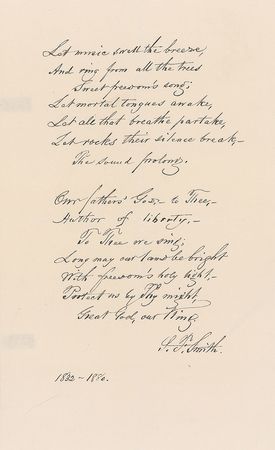 Let music swell the breeze,
And ring from all the trees
Sweet freedom's song;
Let mortal tongues awake,
Let all that breathe partake,
Let rocks their silence break,–
The sound prolong.
Our fathers' God to Thee,–
Author of liberty,–
To Thee we sing;
Long may our land be bright
With freedom's holy light,–
Protect us by Thy might,
Great God, our King.
S. F. Smith.
1832–1886.